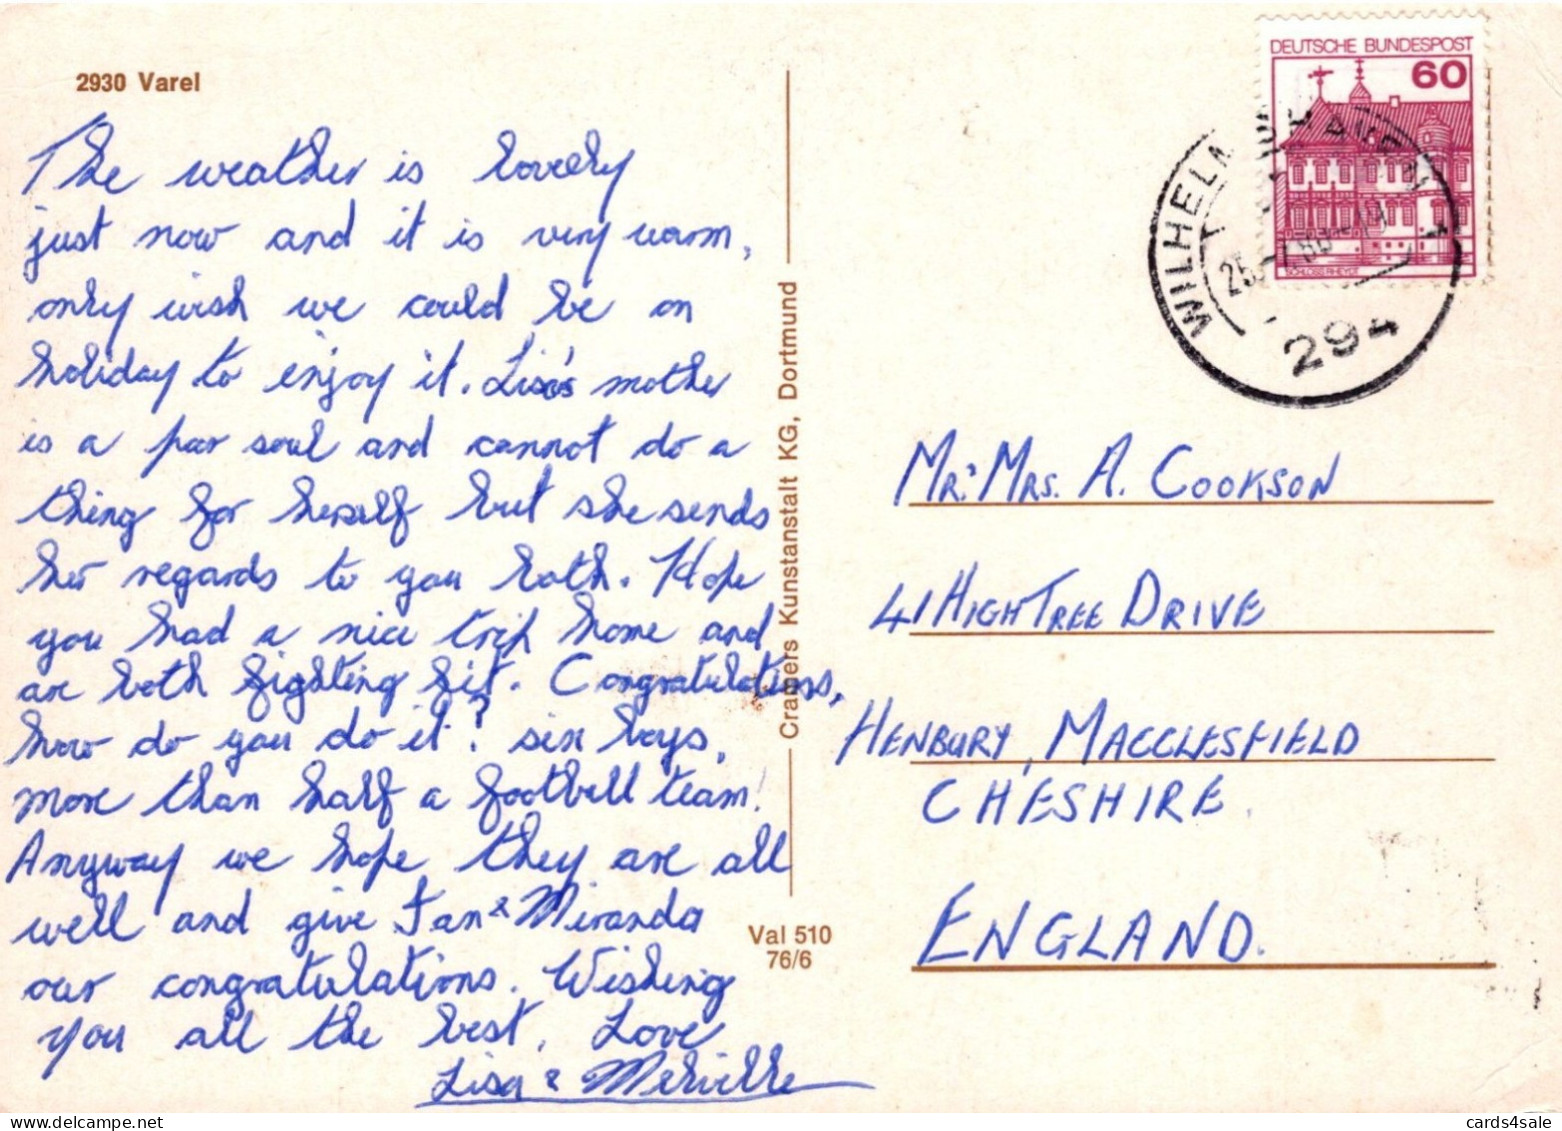 2930 Varel
The weather is lovely
just now and it is very warm,
only wish we could be on
holiday to enjoy it. Lisa's mother
is a poor soul and cannot do a
thing for herself but she sends
her regards to you both. Hope
you had a nice trip home and
are both fighting fit. Congratulations,
how do you do it? six boys,
more than half a football team!
Anyway we hope they are all
well and give Ian & Miranda
our congratulations. Wishing
you all the best, Love
Lisa & Melville
Cramers Kunstanstalt KG, Dortmund
Val 510
76/6
DEUTSCHE BUNDESPOST
60
SCHLOSS RHEYDT
WILHELMSHAVEN
25.-7.80-19
294
MR.& MRS. A. COOKSON
41 HIGHTREE DRIVE
HENBURY, MACCLESFIELD
CHESHIRE.
ENGLAND.
cards4sale